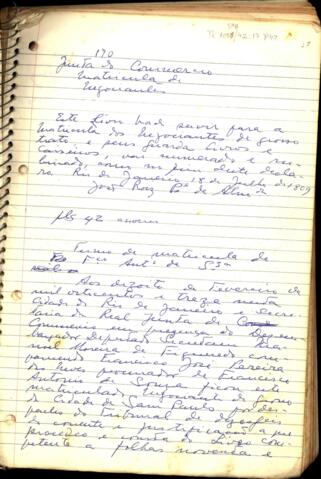 170
Junta do Commercio
Matricula de
Negociantes
Este livro hade servir para a
Matricula dos negociantes de grosso
trato, e seus guarda livros e
Caixeiros, vai numerado e
Rio de Janeiro 18 de Julho de 1809
José
fls 42 anverso
Termo de matricula de
Fco Antº de Sza
Aos dezoito de Fevereiro de
mil oitocentos e treze nesta
Cidade do Rio de Janeiro e Secre
taria da Real Junta do
Commercio em presença do Desem
bargador Deputado Secretario Ma
noel Moreira de Figueiredo com
pareceu Francisco José Pereira
das Neves procurador de Francisco
Antonio de Souza ficou este
matriculado Negociante de grosso
da Cidade de Sam Paulo por des
pacho do Tribunal de
do corrente e justificação a que
procedeu e consta do Livro com
petente a folhas noventa e